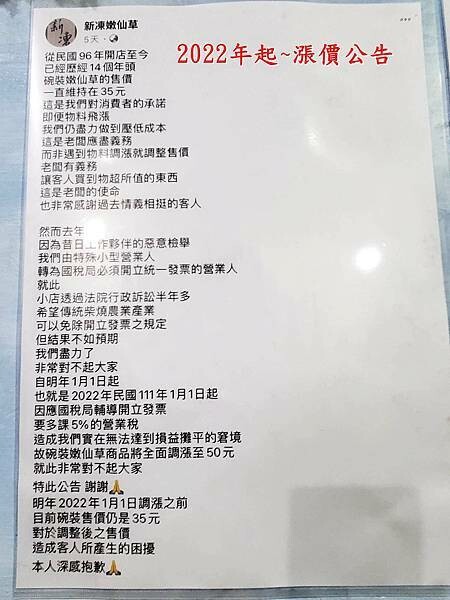 新凍
新凍嫩仙草
5天
2022年起~漲價公告
從民國96年開店至今
已經歷經14個年頭
碗裝嫩仙草的售價
一直維持在35元
這是我們對消費者的承諾
即便物料飛漲
我們仍盡力做到壓低成本
這是老闆應盡義務
而非遇到物料調漲就調整售價
老闆有義務
讓客人買到物超所值的東西
這是老闆的使命
也非常感謝過去情義相挺的客人
然而去年
因為昔日工作夥伴的惡意檢舉
我們由特殊小型營業人
轉為國稅局必須開立統一發票的營業人
就此
小店透過法院行政訴訟半年多
希望傳統柴燒農業產業
可以免除開立發票之規定
但結果不如預期
我們盡力了
非常對不起大家
自明年1月1日起
也就是2022年民國111年1月1日起
因應國稅局輔導開立發票
要多課5%的營業稅
造成我們實在無法達到損益攤平的窘境
故碗裝嫩仙草商品將全面調漲至50元
就此非常對不起大家
特此公告 謝謝🙏
明年2022年1月1日調漲之前
目前碗裝售價仍是35元
對於調整後之售價
造成客人所產生的困擾
本人深感抱歉🙏